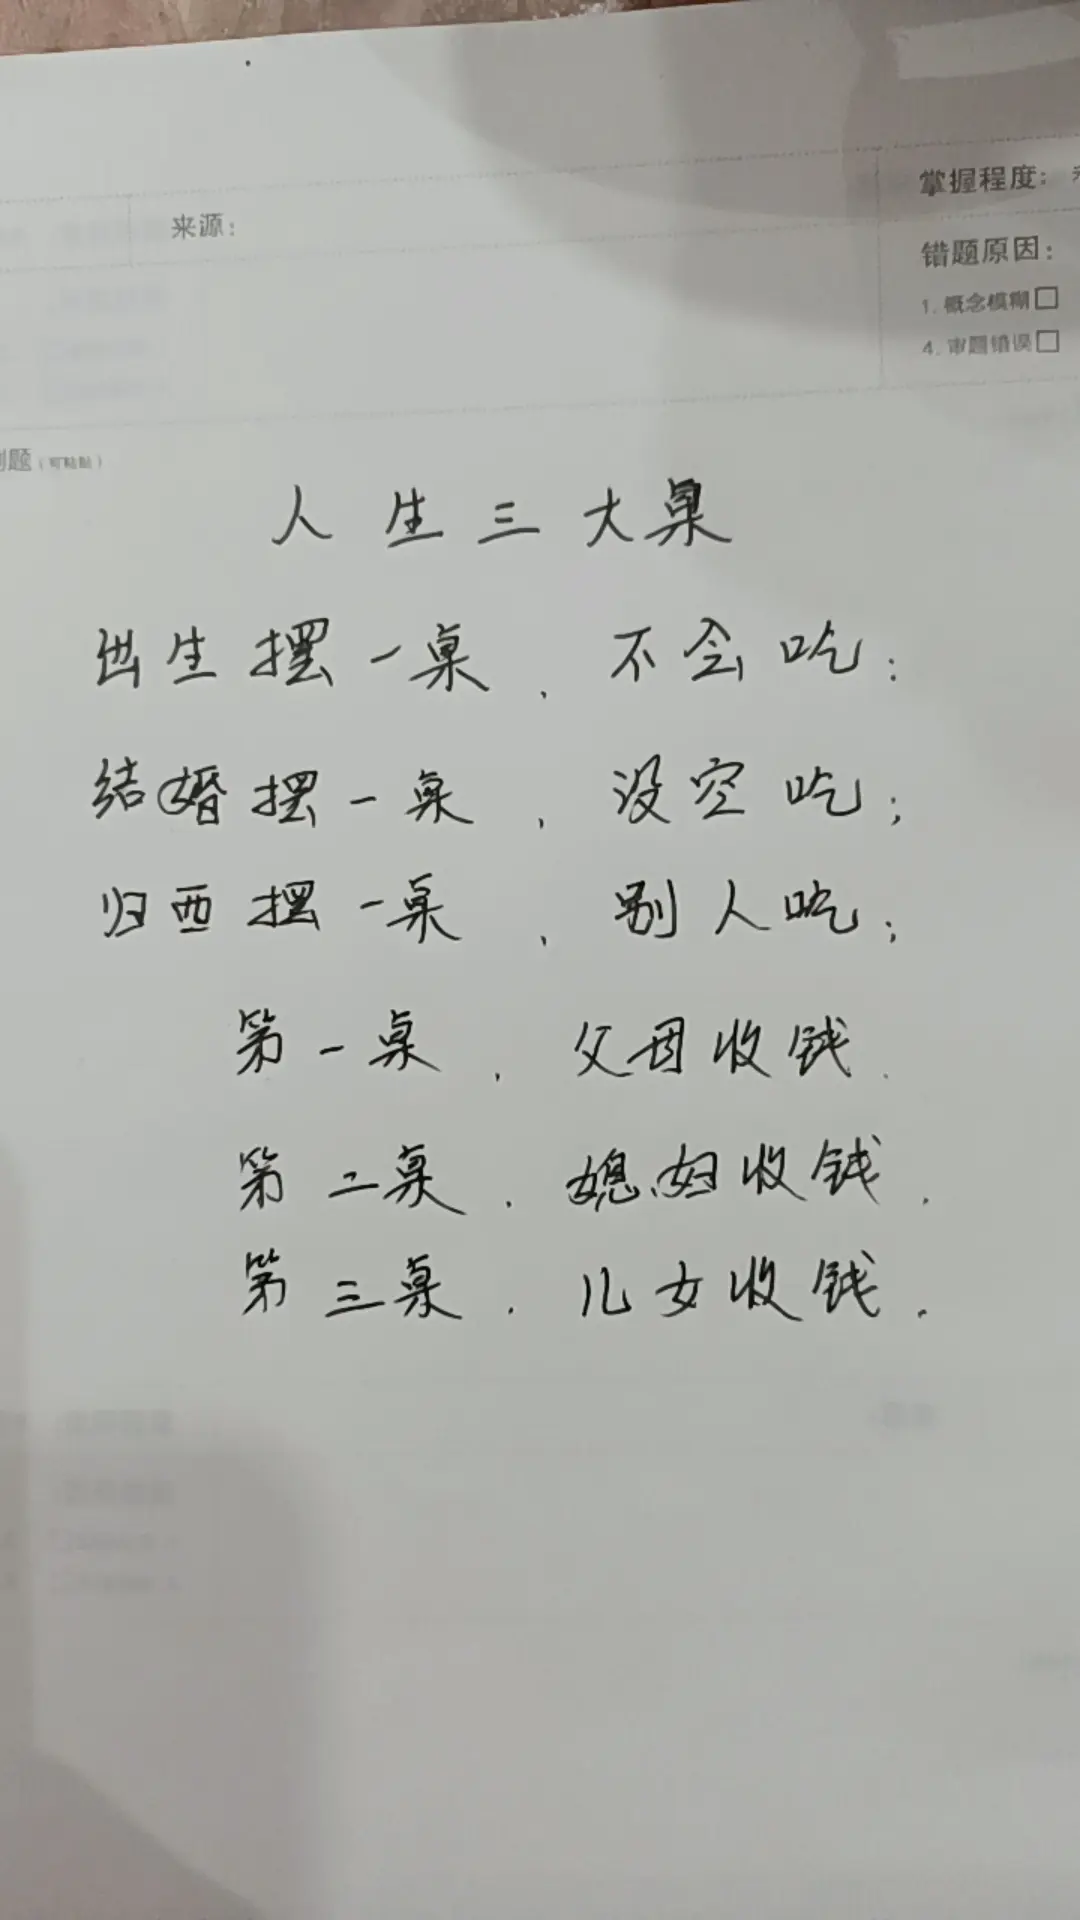 掌握程度：
来源：
错题原因：
1. 概念模糊□
4. 审题错误□
题（可粘贴）
人生三大桌
出生摆一桌，不会吃；
结婚摆一桌，没空吃；
归西摆一桌，别人吃；
第一桌，父母收钱.
第二桌，媳妇收钱.
第三桌，儿女收钱.